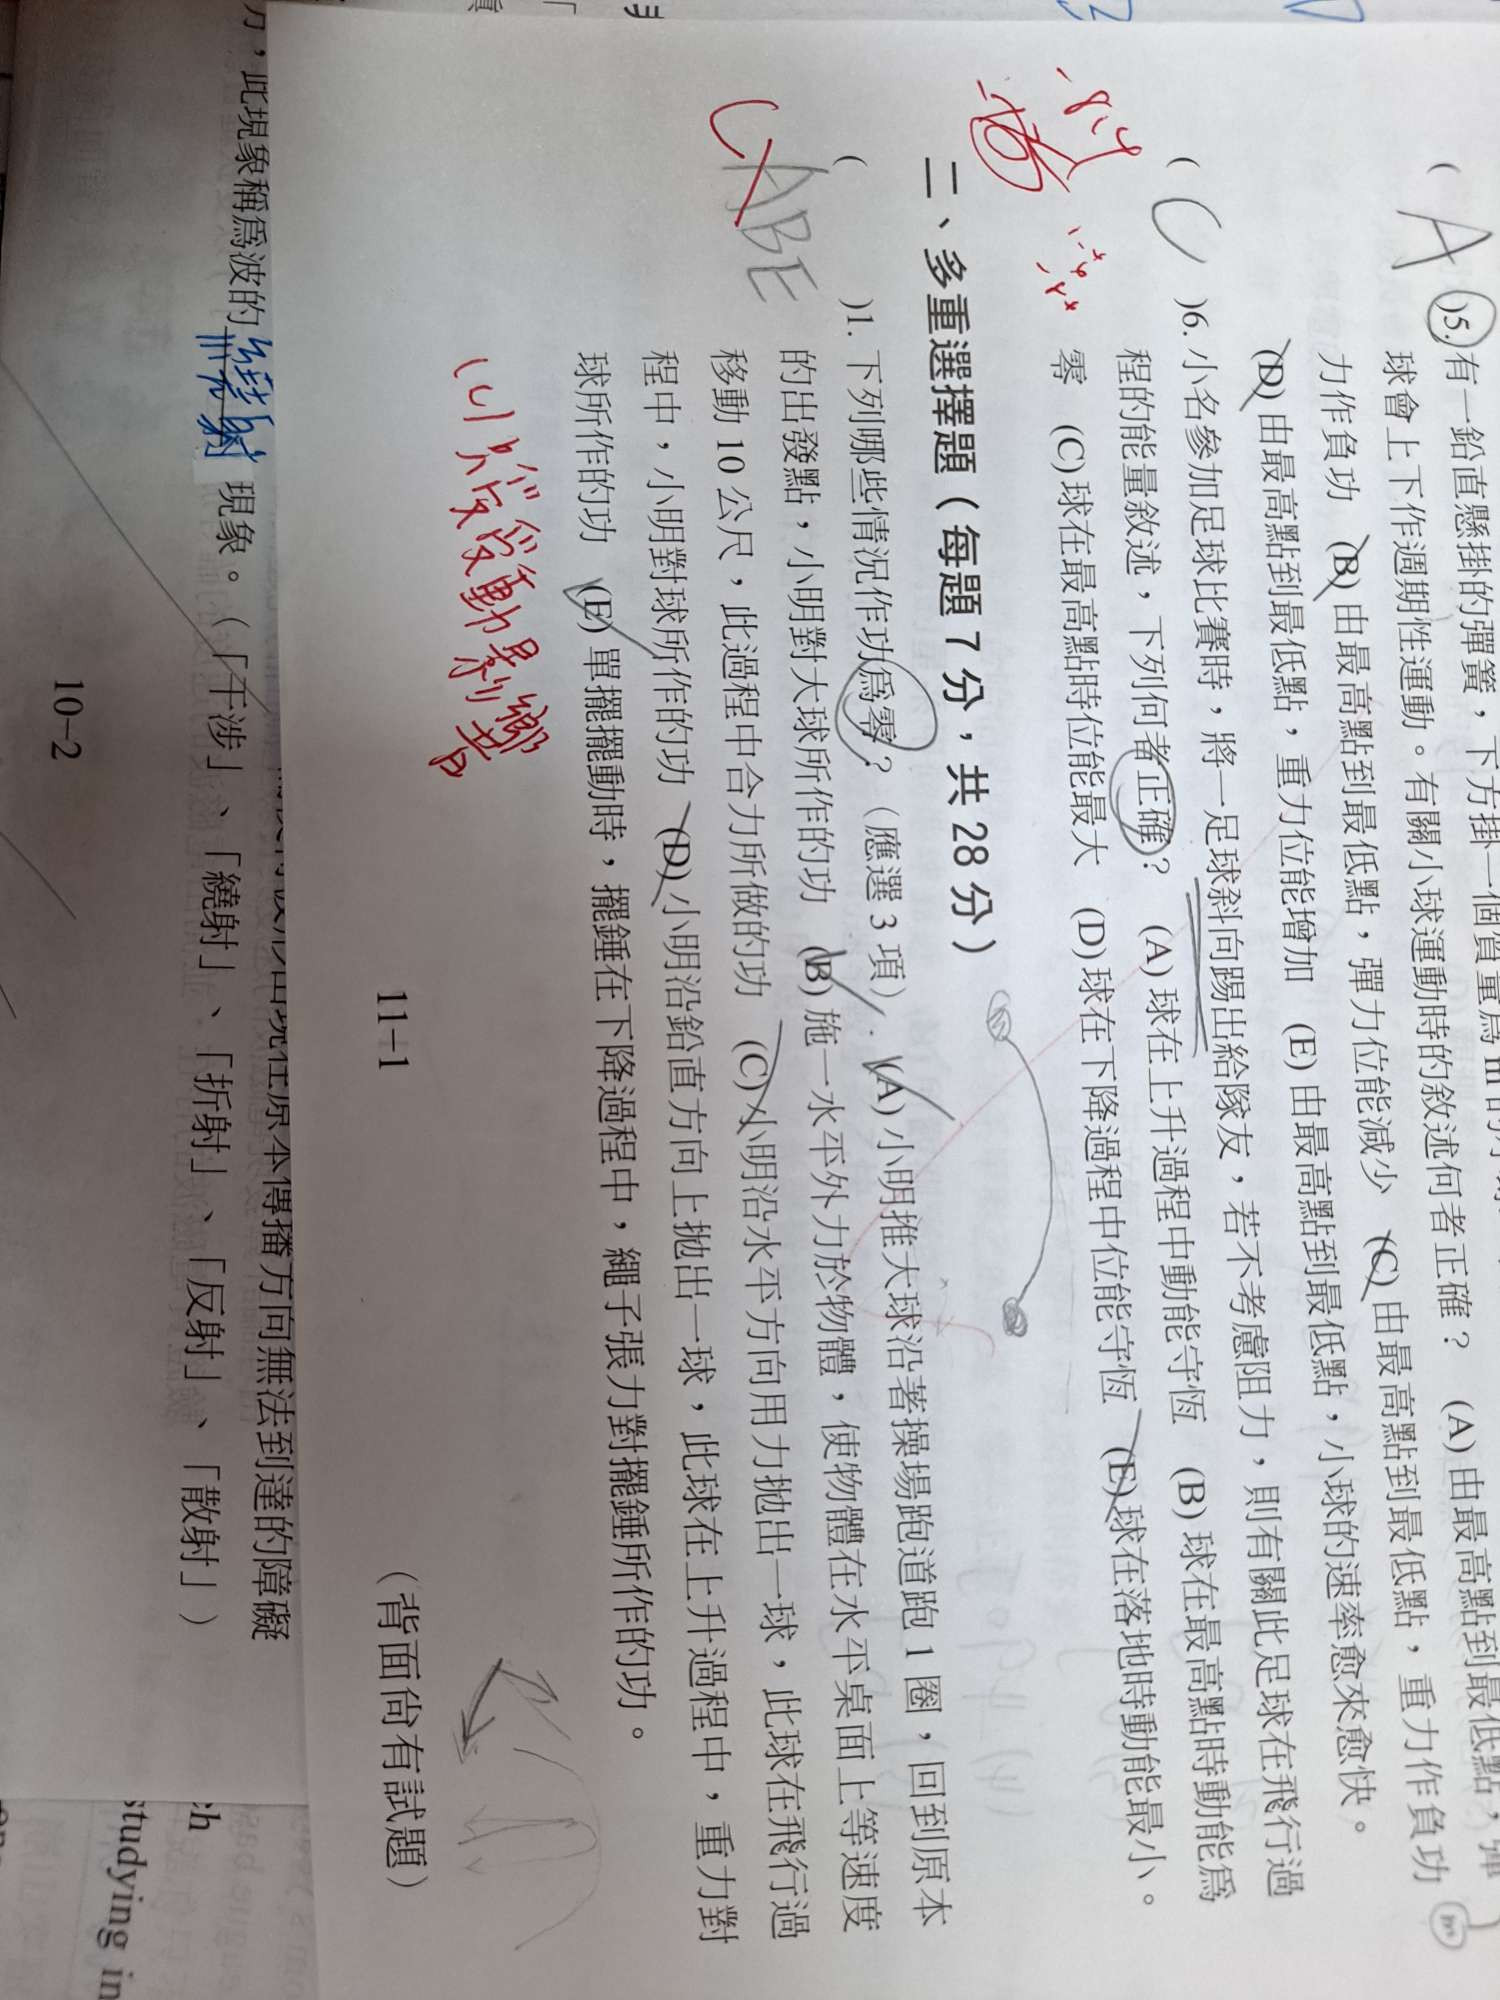 ( A )5. 有一鉛直懸掛的彈簧，下方掛一個質量為 m 的小球
球會上下作週期性運動。有關小球運動時的敘述何者正確？ (A) 由最高點到最低點，彈
力作負功 (B) 由最高點到最低點，彈力位能減少 (C) 由最高點到最低點，重力作負功
(D) 由最高點到最低點，重力位能增加 (E) 由最高點到最低點，小球的速率愈來愈快。
( C )6. 小名參加足球比賽時，將一足球斜向踢出給隊友，若不考慮阻力，則有關此足球在飛行過
程的能量敘述，下列何者正確？ (A) 球在上升過程中動能守恆 (B) 球在最高點時動能為
零 (C) 球在最高點時位能最大 (D) 球在下降過程中位能守恆 (E) 球在落地時動能最小。
二、多重選擇題（每題 7 分，共 28 分）
( )1. 下列哪些情況作功為零？（應選 3 項） (A) 小明推大球沿著操場跑道跑 1 圈，回到原本
ABE
的出發點，小明對大球所作的功 (B) 施一水平外力於物體，使物體在水平桌面上等速度
移動 10 公尺，此過程中合力所做的功 (C) 小明沿水平方向用力拋出一球，此球在飛行過
程中，小明對球所作的功 (D) 小明沿鉛直方向上拋出一球，此球在上升過程中，重力對
球所作的功 (E) 單擺擺動時，擺錘在下降過程中，繩子張力對擺錘所作的功。
(C) 只受重力影響
11-1
（背面尚有試題）
力，此現象稱為波的 繞射 現象。（「干涉」、「繞射」、「折射」、「反射」、「散射」）
10-2
studying in